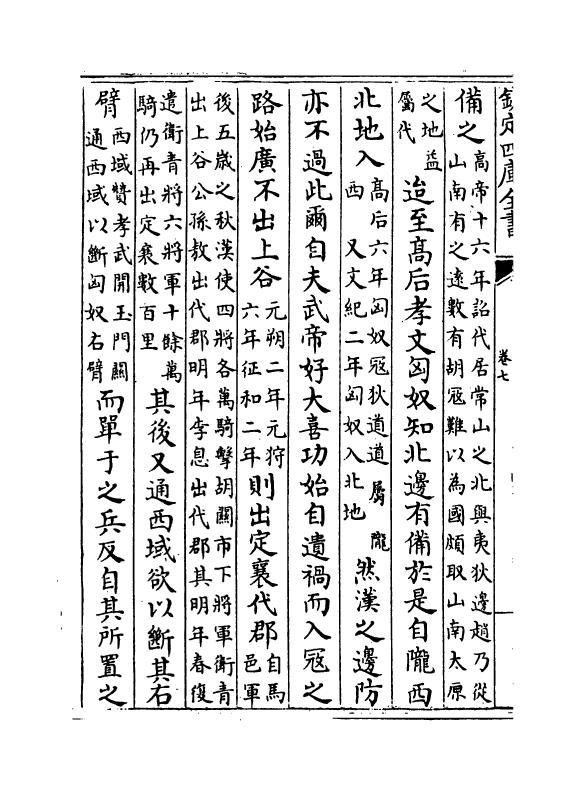 欽定四庫全書
卷七
備之高帝十六年詔代居常山之北與夷狄邊趙乃從
山南有之遠數有胡冦難以為國頗取山南太原
之地益
屬代
迨至髙后孝文匈奴知北邊有備於是自隴西
北地入髙后六年匈奴冦狄道道屬隴
西又文紀二年匈奴入北地
然漢之邊防
亦不過此爾自夫武帝好大喜功始自遺禍而入冦之
路始廣不出上谷元朔二年元狩
六年征和二年
則出定襄代郡自馬
邑軍
後五歲之秋漢使四將各萬騎擊胡關市下將軍衛青
出上谷公孫敖出代郡明年李息出代郡其明年春復
遣衛青將六將軍十餘萬
騎仍再出定襄數百里
其後又通西域欲以斷其右
臂西域贊孝武開玉門關
通西域以斷匈奴右臂
而單于之兵反自其所置之